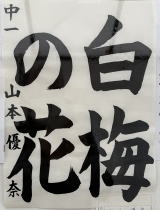 白梅
の花
中一 山本優奈